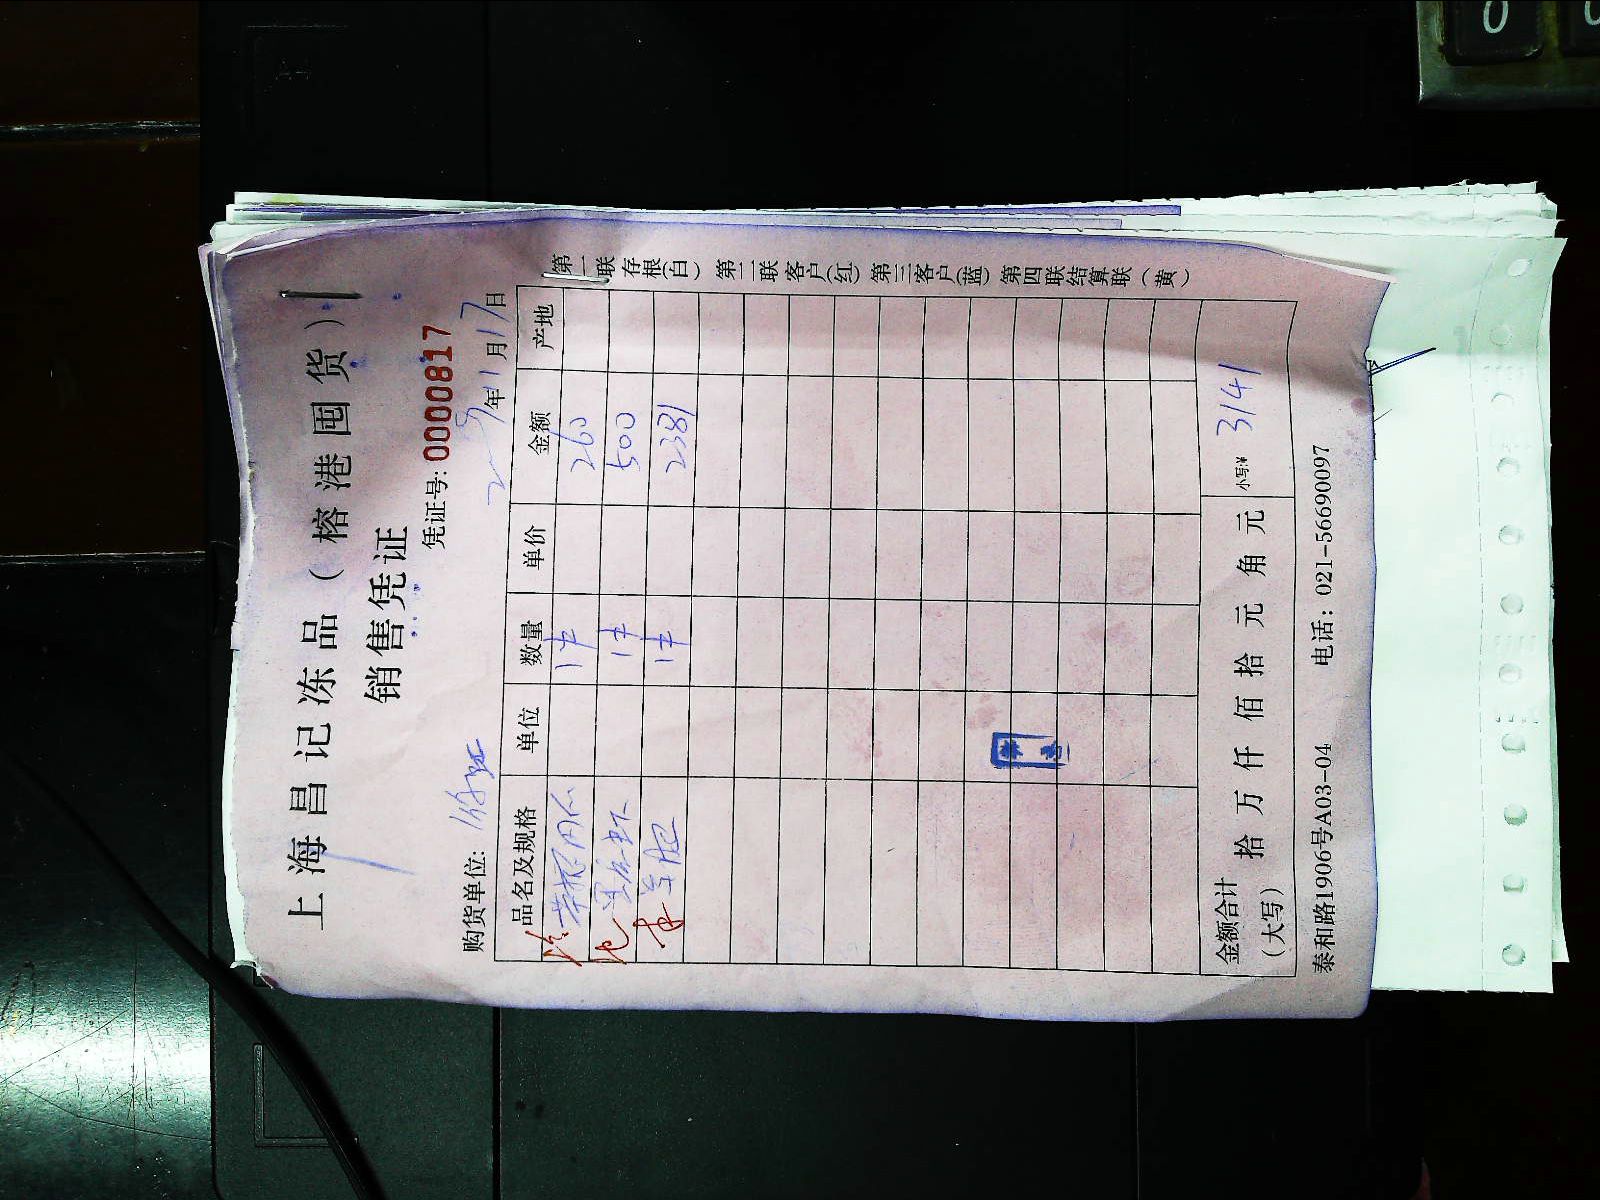 上海昌记冻品（榕港囤货）
销售凭证
凭证号: 0000817
购货单位: 年11月17日
品名及规格 单位 数量 单价 金额 产地
1件 260
1件 500
1件 2381
金额合计（大写） 拾 万 仟 佰 拾 元 角 元 小写:¥ 3141
泰和路1906号A03-04 电话: 021-56690097
第一联 存根(白) 第二联 客户(红) 第三客户(蓝) 第四联结算联（黄）